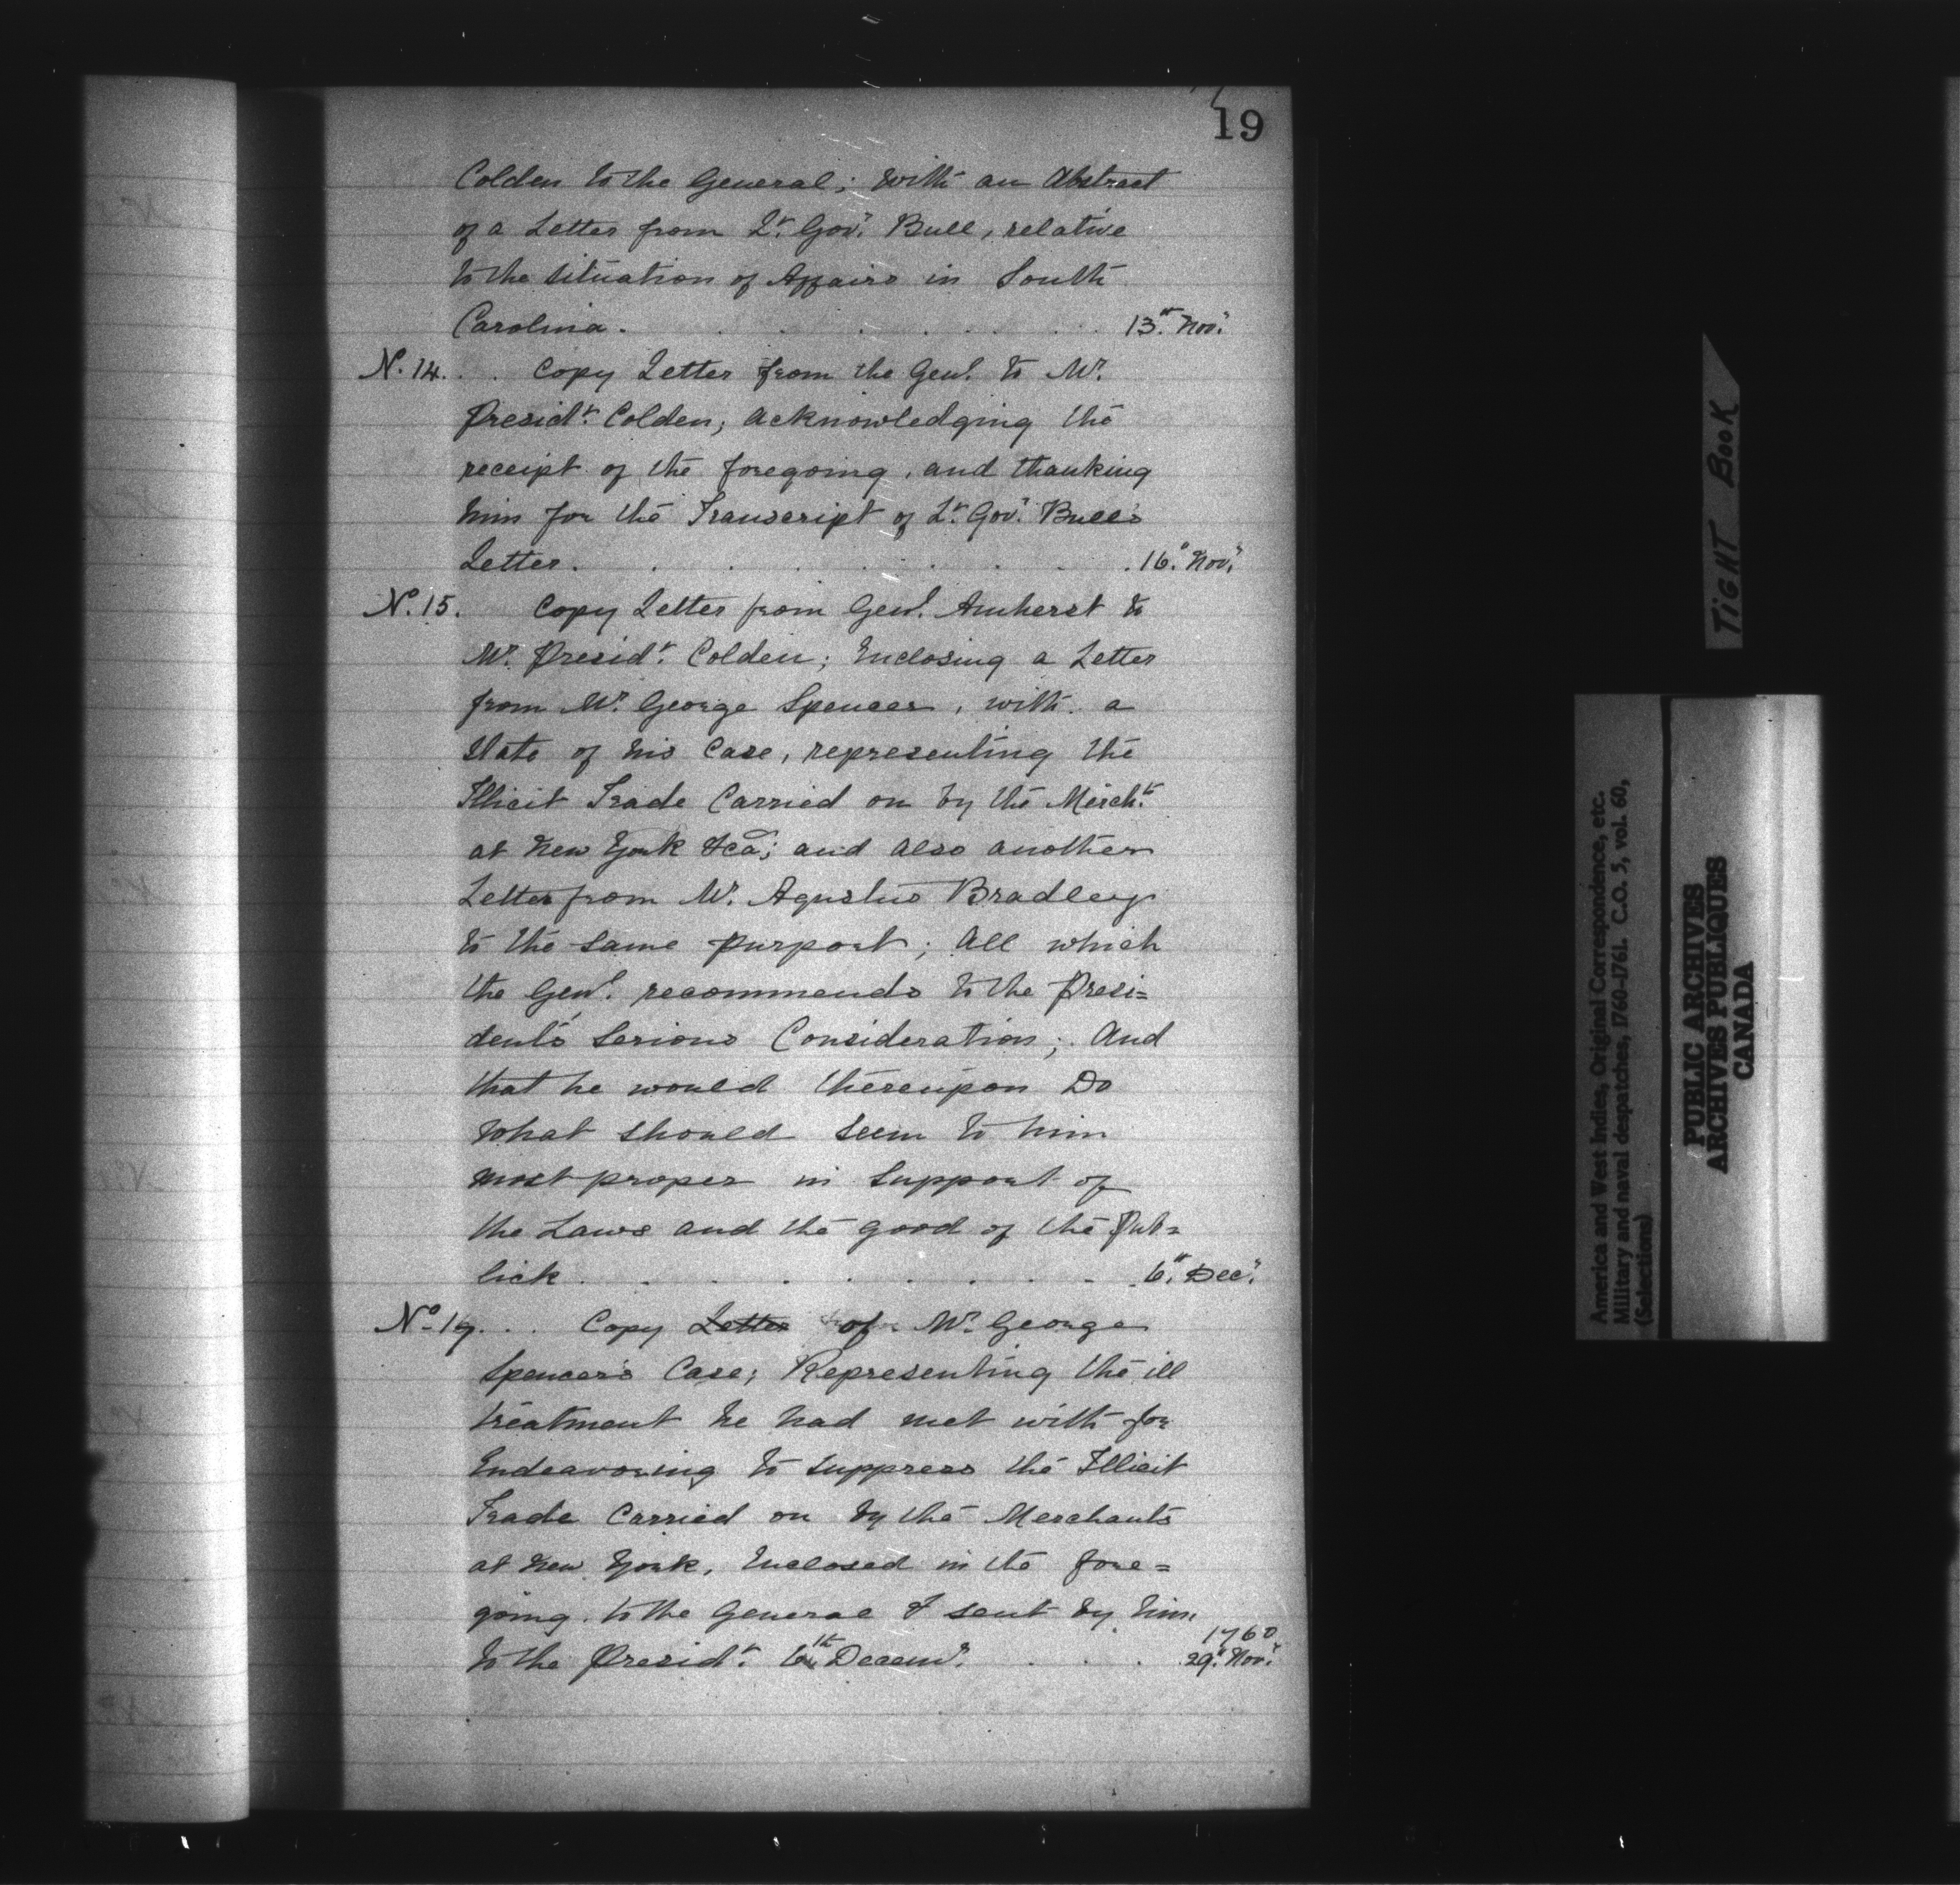 19
Colden to the General; with an Abstract
of a Letter from Lt. Govr. Bull, relative
to the situation of Affairs in South
Carolina. . . . . . . . 13th. Novr.
No. 14. . . Copy Letter from the Genl. to Mr.
Presidt. Colden; acknowledging the
receipt of the foregoing, and thanking
him for the Transcript of Lt. Govr. Bull's
Letter. . . . . . . . . 16th. Novr.
No. 15. Copy Letter from Genl. Amherst to
Mr. Presidt. Colden; Enclosing a Letter
from Mr. George Spencer, with a
State of his Case, representing the
Illicit Trade Carried on by the Mercht.s
at New York &ca; and also another
Letter from Mr. Agustus Bradley
to the same purport; All which
the Genl. recommends to the Presi=
dent's Serious Consideration; And
that he would thereupon Do
what should seem to him
most proper in Support of
the Laws and the good of the Pub=
lick . . . . . . . . 6th. Decr.
No. 19. . . Copy Letter of Mr. George
Spencer's Case; Representing the ill
treatment he had met with for
Endeavoring to suppress the Illicit
Trade Carried on by the Merchants
at New York, Enclosed in the fore=
going to the General & sent by him
to the Presidt. 6th Decemr. . . . 1760 29th. Novr.
TIGHT BOOK
America and West Indies, Original Correspondence, etc.
Military and naval despatches, 1760-1761. C.O. 5, vol. 60,
(Selections)
PUBLIC ARCHIVES
ARCHIVES PUBLIQUES
CANADA